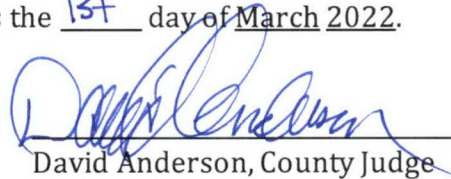 the 1st day of March 2022.
David Anderson
David Anderson, County Judge